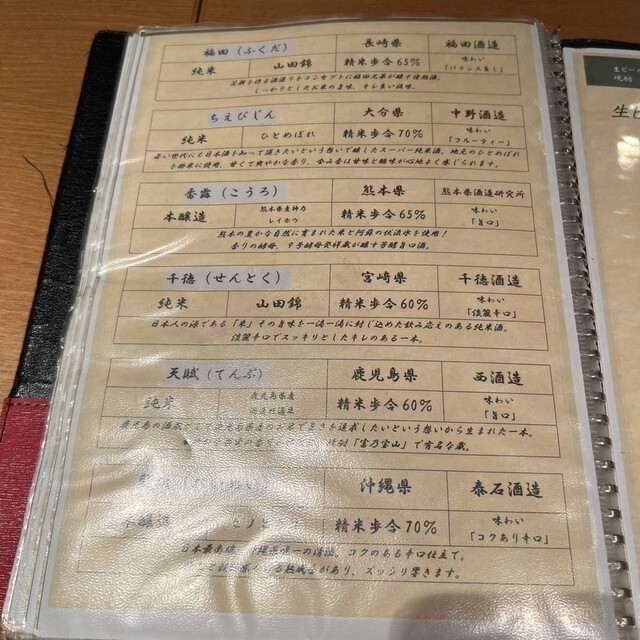 福田（ふくだ） 長崎県 福田酒造
純米 山田錦 精米歩合65% 味わい
「バランス良し」
しっかりとしたお米の旨味、キレ良い後味。
ちえびじん 大分県 中野酒造
純米 ひとめぼれ 精米歩合70% 味わい
「フルーティー」
若い世代にも日本酒を知って頂きたいという想いで醸したスーパー純米酒。地元のひとめぼれ
を掛米に使用、甘くて爽やかな香り、含み香は甘味と酸味が心地よく感じられます。
香露（こうろ） 熊本県 熊本県酒造研究所
本醸造 熊本県産神力
レイホウ 精米歩合65% 味わい
「旨口」
熊本の豊かな自然に育まれた米と阿蘇の伏流水を使用！
香りの酵母、9号酵母発祥蔵が醸す芳醇旨口酒。
千徳（せんとく） 宮崎県 千徳酒造
純米 山田錦 精米歩合60% 味わい
「淡麗辛口」
日本人の源である「米」その旨味を一滴一滴に封じ込めた飲み応えのある純米酒。
淡麗辛口でスッキリとしたキレのある一本。
天賦（てんぶ） 鹿児島県 西酒造
純米 鹿児島県産 精米歩合60% 味わい
「旨口」
鹿児島の酒蔵として鹿児島県産のお米で旨さを追求したいという想いから生まれた一本。
「富乃宝山」で有名な蔵。
沖縄県 泰石酒造
本醸造 精米歩合70% 味わい
「コクあり辛口」
日本最南端、沖縄県唯一の清酒。コクのある辛口仕立て。
があり、ズッシリ響きます。
生ビール
焼酎
生ビ